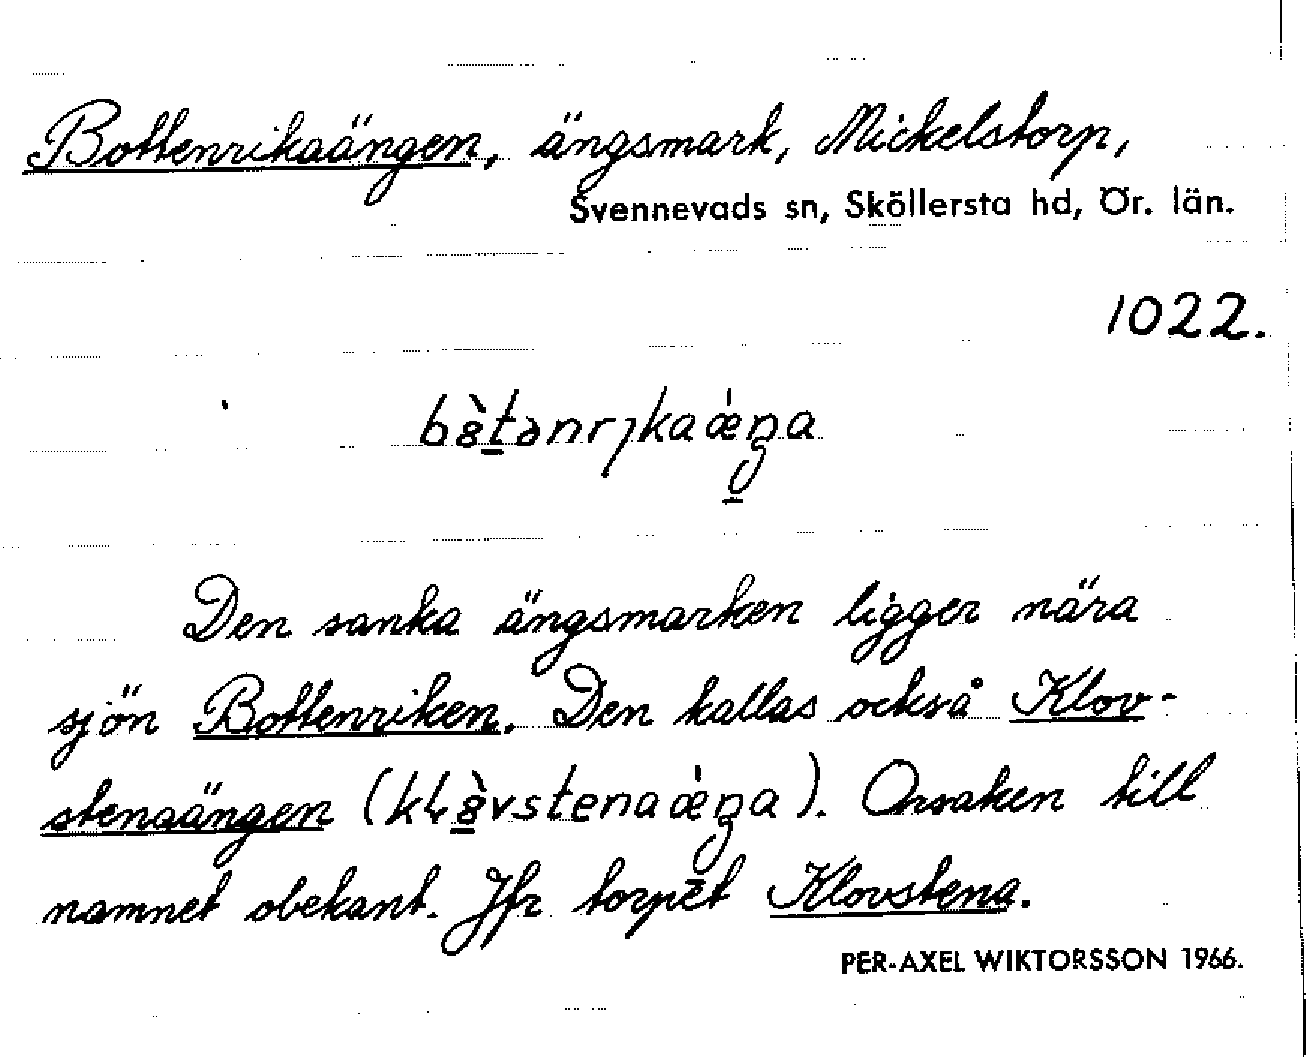 Bottenrikaängen, ängsmark, Mickelstorp,
Svennevads sn, Sköllersta hd, Ör. län.
1022.
b8̀tənrɿkaǽŋa
Den sanka ängsmarken ligger nära
sjön Bottenriken. Den kallas också Klov-
stenaängen (kɬ8̀vstenaǽŋa). Orsaken till
namnet obekant. Jfr torpet Klovstena.
PER-AXEL WIKTORSSON 1966.